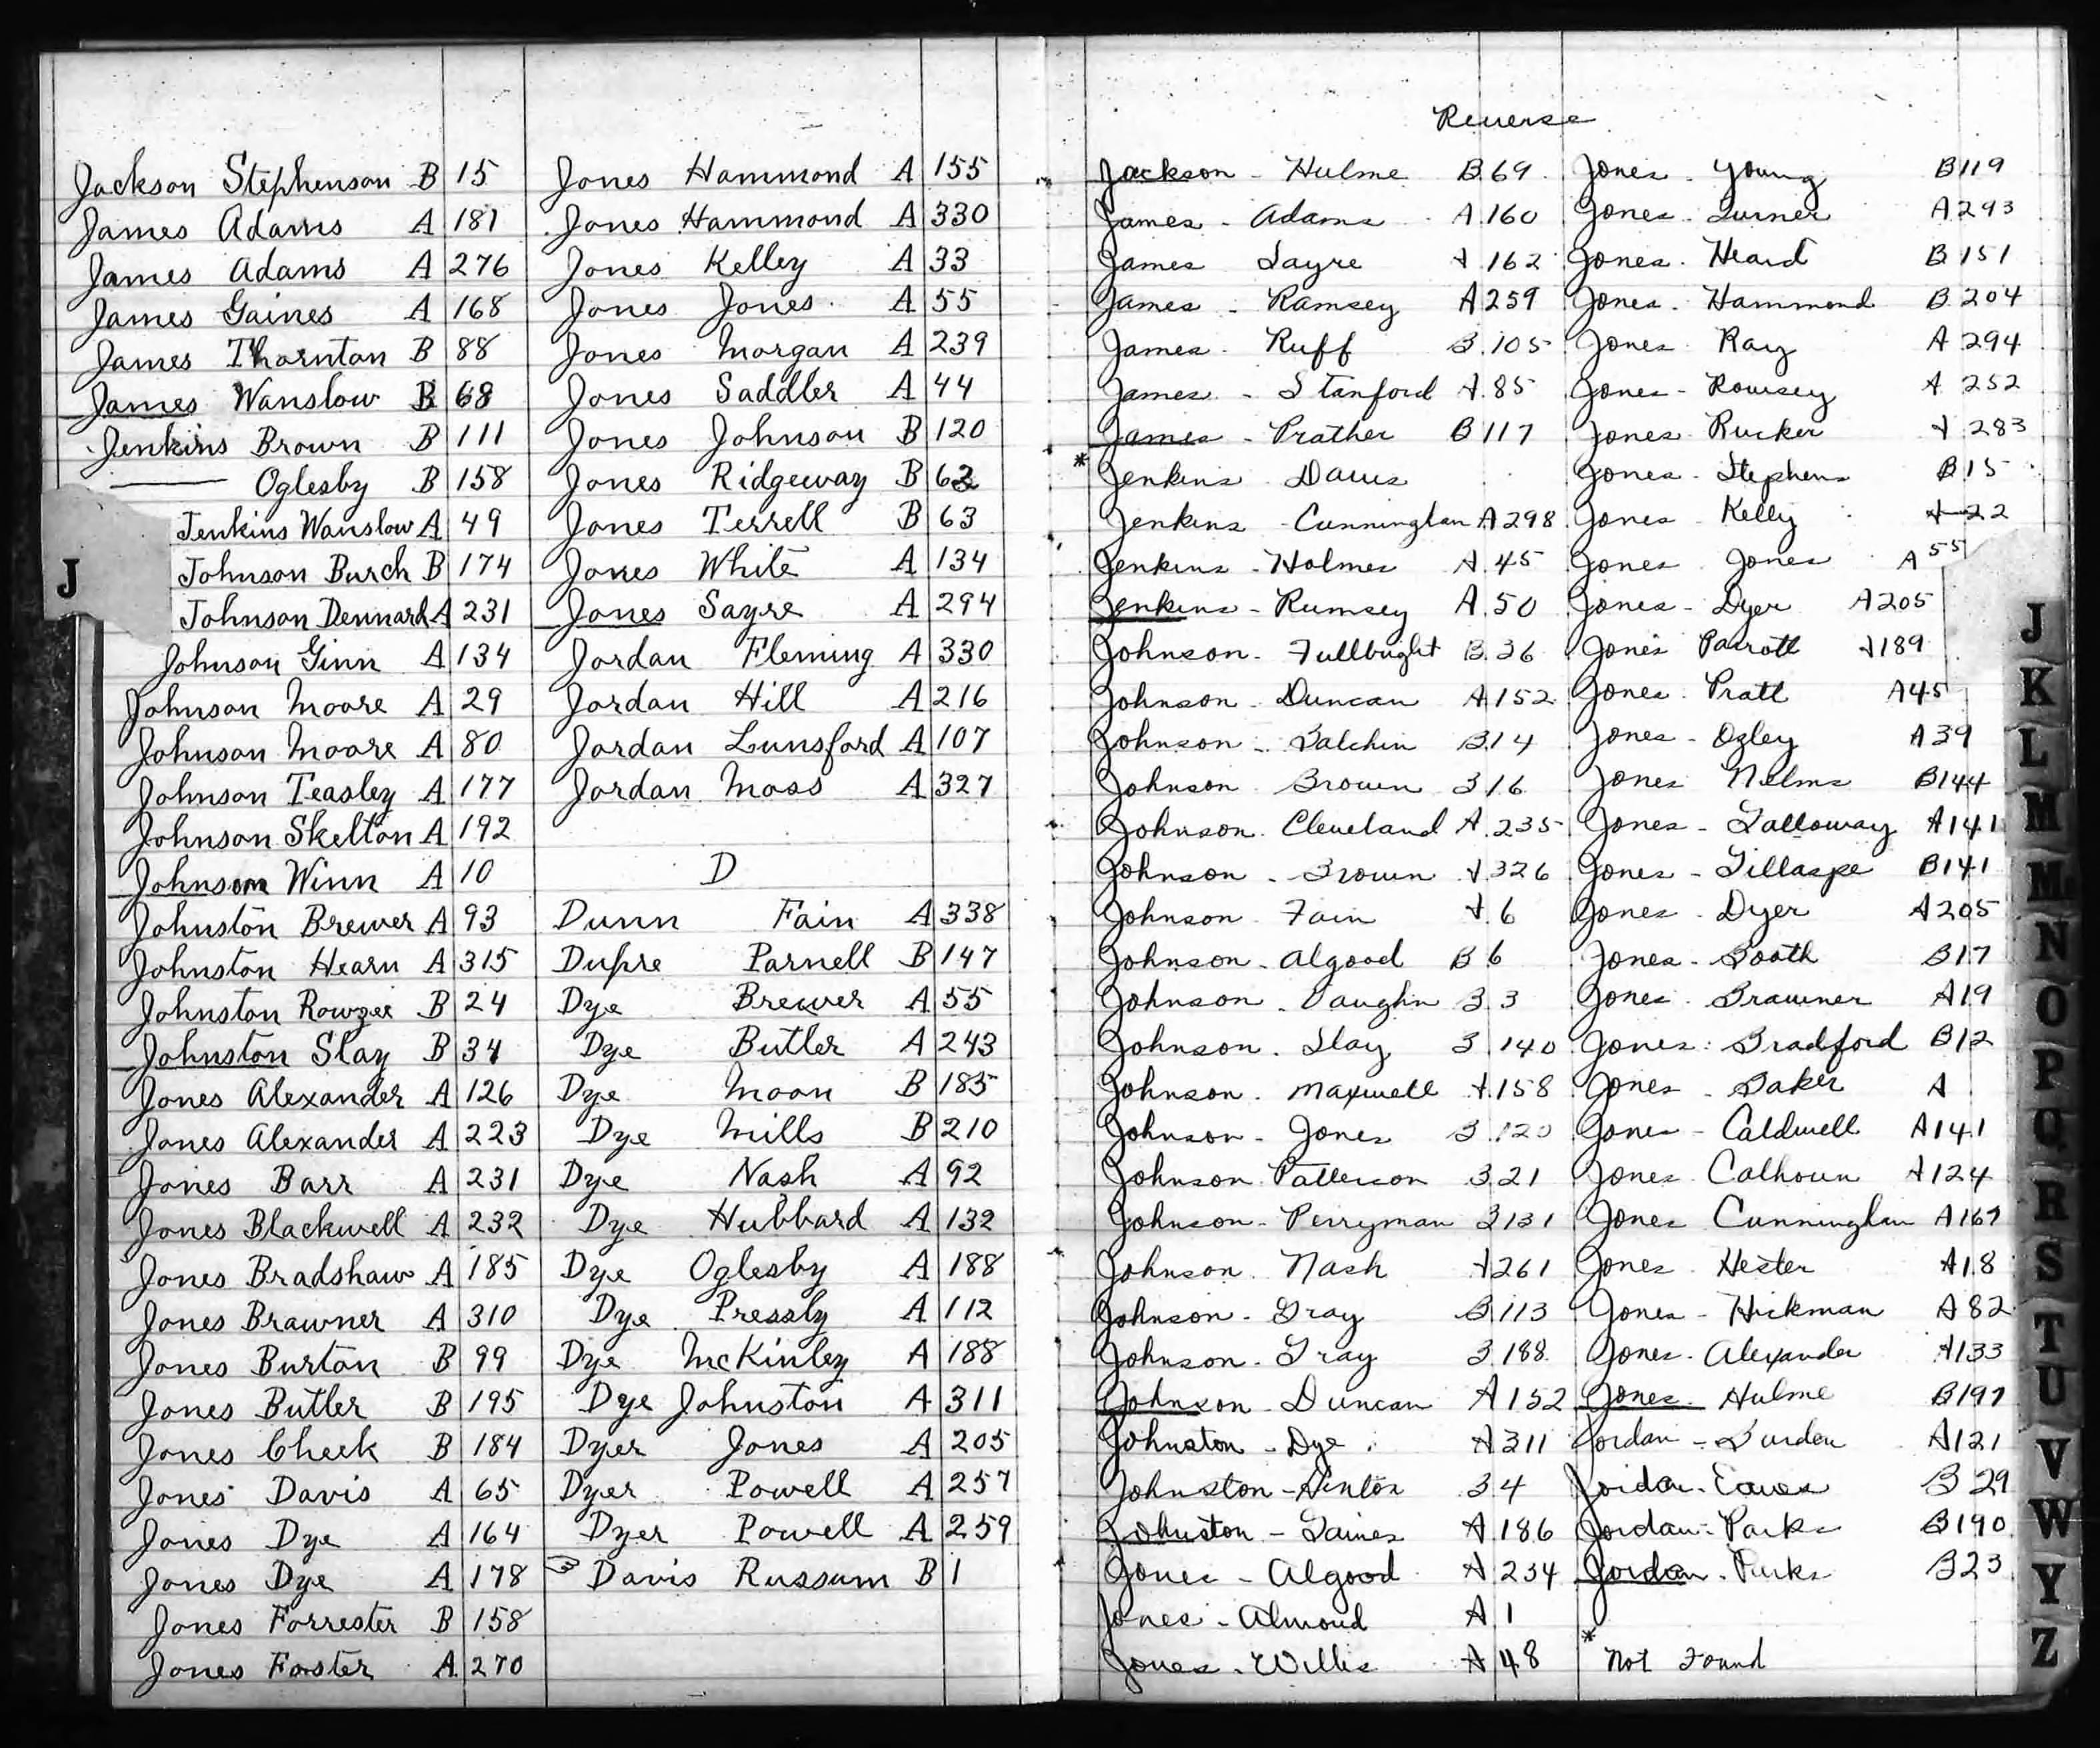 Jackson Stephenson B 15
James Adams A 181
James Adams A 276
James Gaines A 168
James Thornton B 88
James Wanslow B 68
Jenkins Brown B 111
—— Oglesby B 158
Jenkins Wanslow A 49
Johnson Burch B 174
J
Johnson Dennard A 231
Johnson Ginn A 134
Johnson Moore A 29
Johnson Moore A 80
Johnson Teasley A 177
Johnson Skelton A 192
Johnson Winn A 10
Johnston Brewer A 93
Johnston Hearn A 315
Johnston Rowzee B 24
Johnston Slay B 34
Jones Alexander A 126
Jones Alexander A 223
Jones Barr A 231
Jones Blackwell A 232
Jones Bradshaw A 185
Jones Brawner A 310
Jones Burton B 99
Jones Butler B 195
Jones Cheek B 184
Jones Davis A 65
Jones Dye A 164
Jones Dye A 178
Jones Forrester B 158
Jones Foster A 270
Jones Hammond A 155
Jones Hammond A 330
Jones Kelley A 33
Jones Jones A 55
Jones Morgan A 239
Jones Saddler A 44
Jones Johnson B 120
Jones Ridgeway B 62
Jones Terrell B 63
Jones White A 134
Jones Sayre A 294
Jordan Fleming A 330
Jordan Hill A 216
Jordan Lunsford A 107
Jordan Moss A 327
D
Dunn Fain A 338
Dupre Parnell B 147
Dye Brewer A 55
Dye Butler A 243
Dye Moon B 185
Dye Mills B 210
Dye Nash A 92
Dye Hubbard A 132
Dye Oglesby A 188
Dye Pressly A 112
Dye McKinley A 188
Dye Johnston A 311
Dyer Jones A 205
Dyer Powell A 257
Dyer Powell A 259
Davis Russum B 1
Reverse
Jackson - Hulme B 69
James - Adams A 160
James Sayre A 162
James - Ramsey A 259
James - Ruff B 105
James - Stanford A 85
James - Prather B 117
* Jenkins Davis
Jenkins - Cunningham A 298
Jenkins - Holmes A 45
Jenkins - Rumsey A 50
Johnson - Fullbright B 36
Johnson - Duncan A 152
Johnson - Balchin B 14
Johnson Brown B 16
Johnson - Cleveland A 235
Johnson - Brown A 326
Johnson Fain A 6
Johnson - Algood B 6
Johnson - Vaughn B 3
Johnson - Slay B 140
Johnson - Maxwell A 158
Johnson - Jones B 120
Johnson Patterson B 21
Johnson - Perryman B 131
Johnson - Nash A 261
Johnson - Gray B 113
Johnson - Gray B 188
Johnson - Duncan A 152
Johnston - Dye A 311
Johnston - Hinton B 4
Johnston - Gaines A 186
Jones - Algood A 234
Jones - Almond A 1
Jones - Willis A 48
Jones - Young B 119
Jones - Turner A 293
Jones - Heard B 151
Jones - Hammond B 204
Jones Ray A 294
Jones - Roursey A 252
Jones Rucker A 283
Jones - Stephens B 15
Jones Kelly A 22
Jones Jones A 55
Jones - Dyer A 205
Jones Parrott A 189
Jones - Pratt A 45
Jones - Ogley A 39
Jones Nelms B 144
Jones - Galloway A 141
Jones - Gillaspe B 141
Jones - Dyer A 205
Jones - Booth B 17
Jones - Brawner A 19
Jones - Bradford B 12
Jones - Baker A
Jones - Caldwell A 141
Jones Calhoun A 124
Jones Cunningham A 167
Jones Hester A 18
Jones - Hickman A 82
Jones - Alexander A 133
Jones - Hulme B 197
Jordan - Burden A 121
Jordan - Eaves B 29
Jordan - Parks B 190
Jordan - Parks B 23
* Not Found
J
K
L
M
Mc
N
O
P
Q
R
S
T
U
V
W
Y
Z